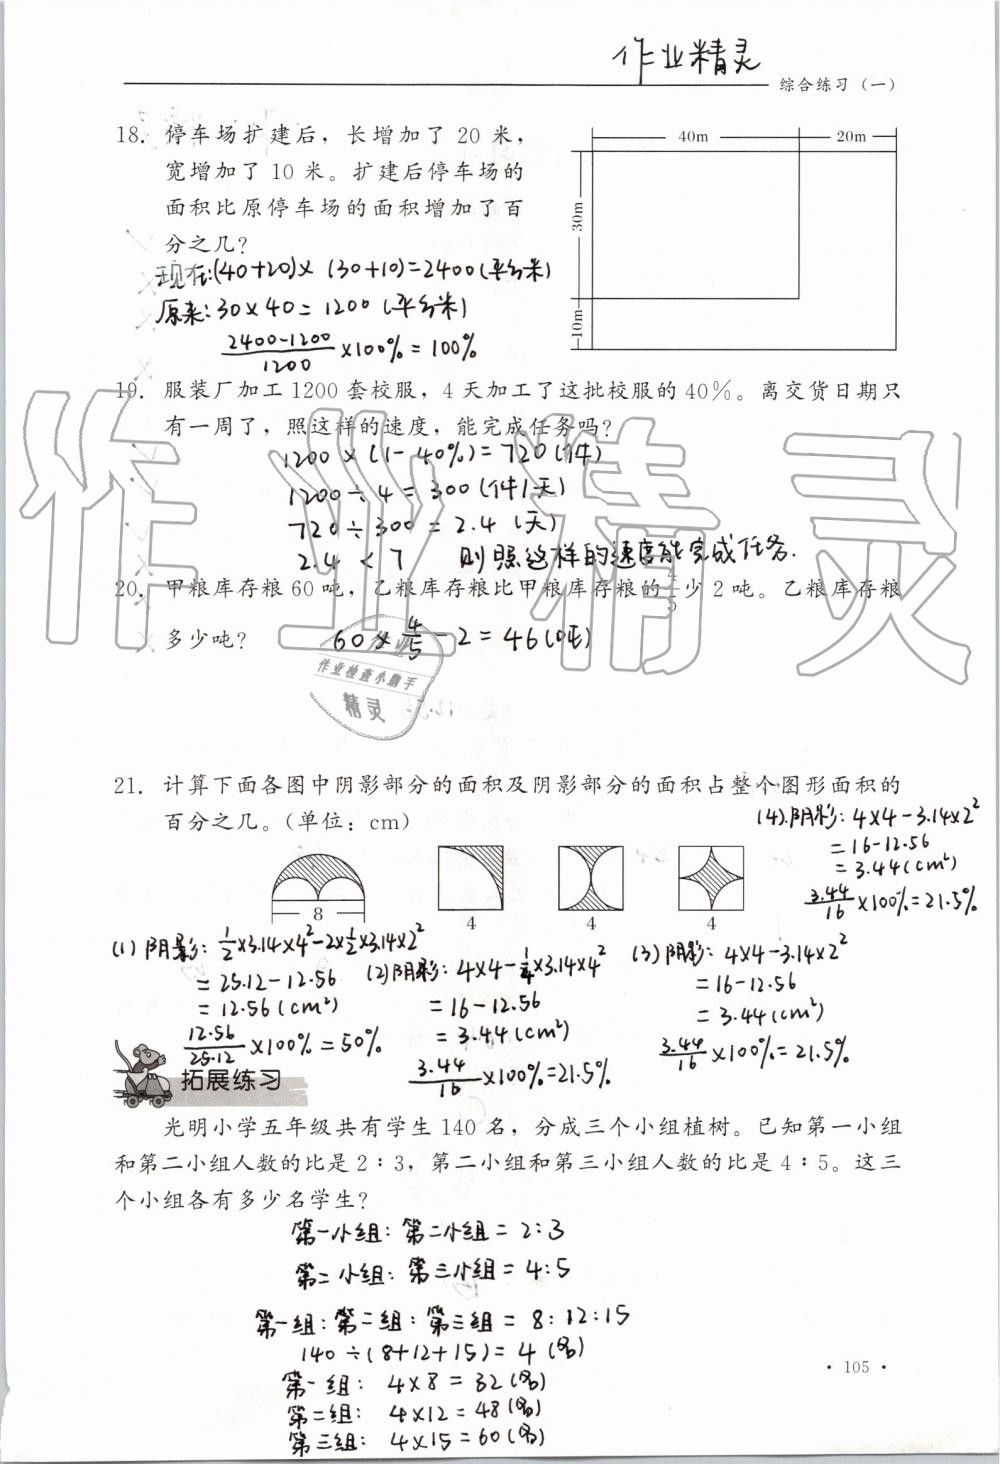 作业精灵
综合练习(一)
18. 停车场扩建后，长增加了 20 米，
宽增加了 10 米。扩建后停车场的
面积比原停车场的面积增加了百
分之几？
40m
20m
30m
10m
现在:(40+20)×(30+10)=2400(平方米)
原来:30×40=1200(平方米)
2400-1200/1200 ×100%=100%
19. 服装厂加工 1200 套校服，4 天加工了这批校服的 40%。离交货日期只
有一周了，照这样的速度，能完成任务吗？
1200×(1-40%)=720(件)
1200÷4=300(件/天)
720÷300=2.4(天)
2.4<7 则照这样的速度能完成任务.
20. 甲粮库存粮 60 吨，乙粮库存粮比甲粮库存粮的 4/5 少 2 吨。乙粮库存粮
多少吨？ 60×4/5-2=46(吨)
作业
作业检查小助手
精灵
21. 计算下面各图中阴影部分的面积及阴影部分的面积占整个图形面积的
百分之几。(单位：cm)
(4).阴影: 4×4-3.14×2²
=16-12.56
=3.44(cm²)
3.44/16 ×100%=21.5%
8
4
4
4
(1) 阴影: 1/2×3.14×4²-2×1/2×3.14×2²
=25.12-12.56
=12.56(cm²)
12.56/25.12 ×100%=50%
(2)阴影: 4×4-1/4×3.14×4²
=16-12.56
=3.44(cm²)
3.44/16 ×100%=21.5%
(3)阴影: 4×4-3.14×2²
=16-12.56
=3.44(cm²)
3.44/16 ×100%=21.5%
拓展练习
光明小学五年级共有学生 140 名，分成三个小组植树。已知第一小组
和第二小组人数的比是 2∶3，第二小组和第三小组人数的比是 4∶5。这三
个小组各有多少名学生？
第一小组: 第二小组=2:3
第二小组: 第三小组=4:5
第一组: 第二组: 第三组=8:12:15
140÷(8+12+15)=4(名)
第一组: 4×8=32(名)
第二组: 4×12=48(名)
第三组: 4×15=60(名)
· 105 ·
作业精灵